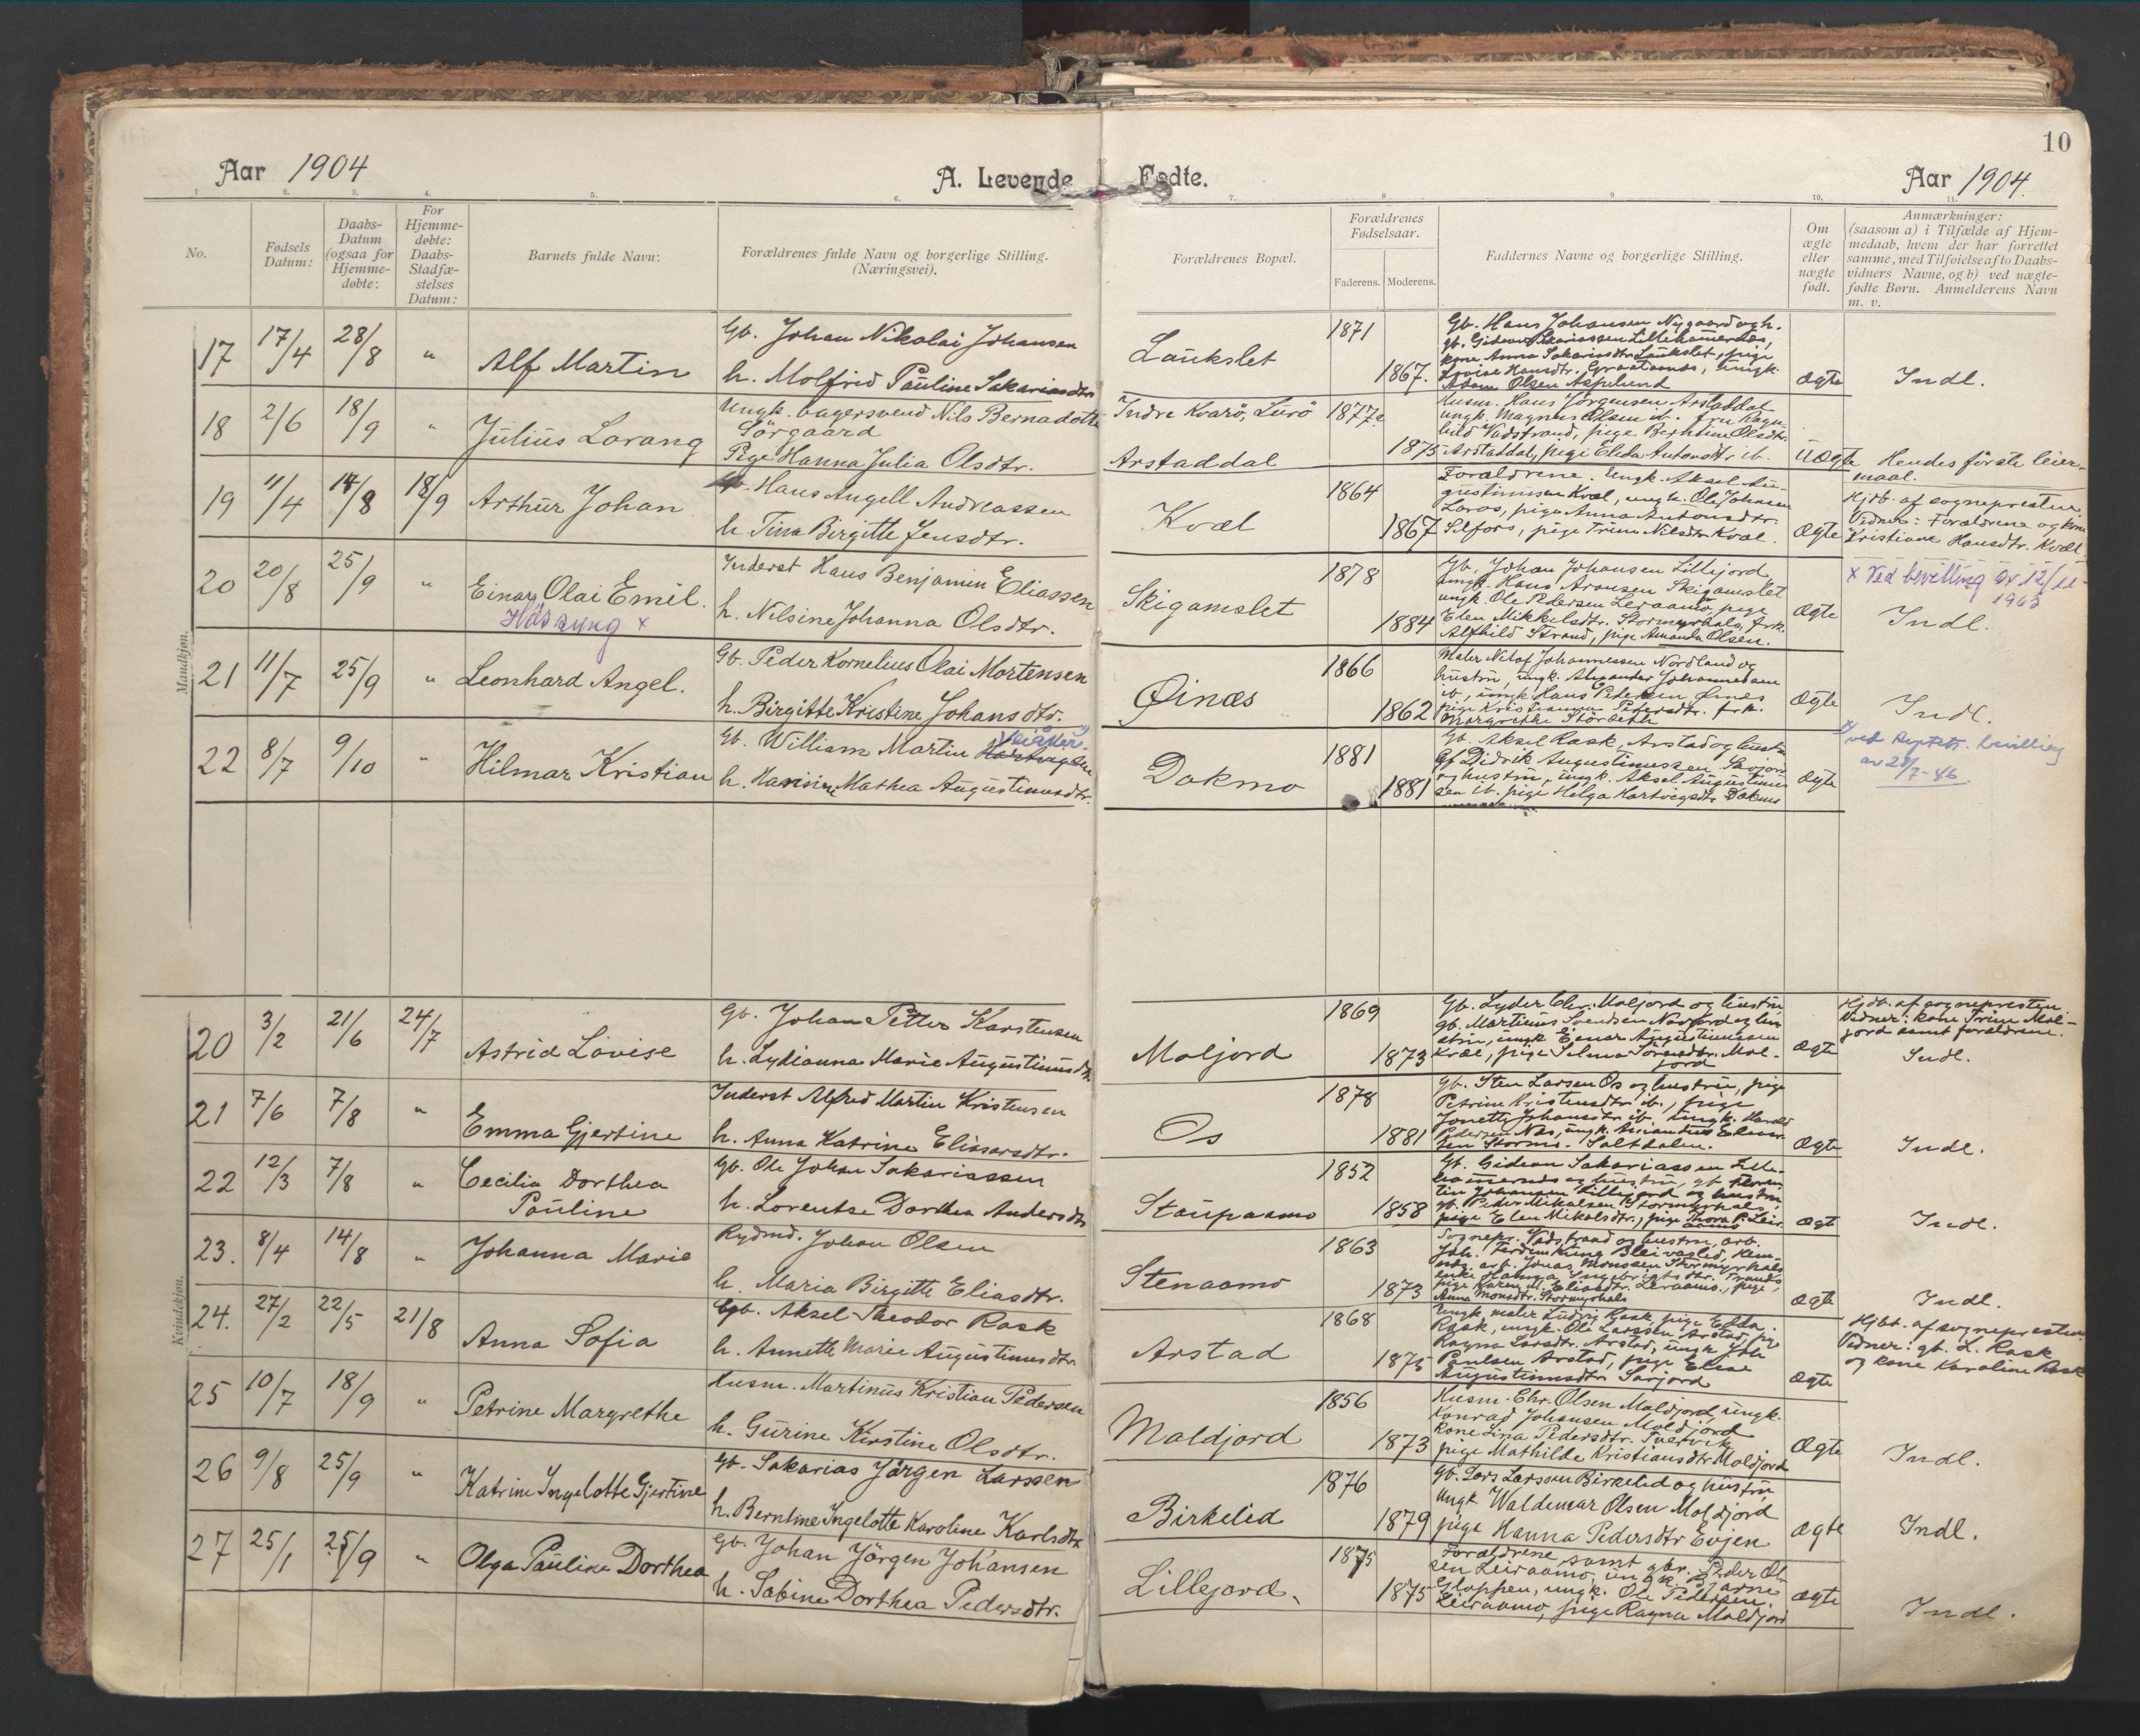 10
Aar 1904
A. Levende Fødte.
Aar 1904.
No.
Fødsels Datum:
Daabs-Datum (ogsaa for Hjemme-døbte:
For Hjemme-døbte: Daabs-Stadfæ-stelses Datum:
Barnets fulde Navn:
Forældrenes fulde Navn og borgerlige Stilling. (Næringsvei).
Forældrenes Bopæl.
Forældrenes Fødselsaar.
Faderens. Moderens.
Faddernes Navne og borgerlige Stilling.
Om ægte eller uægte født.
Anmærkninger: (saasom a) i Tilfælde af Hjem-medaab, hvem der har forrettet samme, med Tilføielse af to Daabs-vidners Navne, og b) ved uægte-fødte Børn. Anmelderens Navn m. v.
Mandkjøn.
17 17/4 28/8 " Alf Martin
Gb. Johan Nikolai Johansen
h. Molfrid Pauline Sakariasdtr
Laukslet 1871 1867.
Gb. Hans Johansen Nygaard og h.
gb. Gideon Sakariassen Lillehammernes,
kone Anna Sakariasdtr Laukslet, pige
Lovise Hansdtr. Graataanes, ungk.
Adam Olsen Aspelund
Ægte Indl.
18 2/6 18/9 " Julius Lorang
Ungk. bagersvend Nils Bernadotte
Sörgaard
Pige Hanna Julia Olsdtr.
Indre Kvarö, Lurö 1877
Arstaddal 1875
Husm. Hans Jörgensen Arstaddal
ungk. Magnus Olsen ib. frk Ragn-
hild Vadstrand, pige Berntine Olsdtr.
Arstaddal, pige Elida Antonsdtr ib.
Uægte Hendes förste leier-
maal.
19 11/4 14/8 18/9 Arthur Johan
Gb. Hans Angell Andreassen
h. Tina Birgitte Jensdtr.
Kvæl 1864 1867
Forældrene. Ungk. Aksel Au-
gustinussen Kvæl, ungk. Ole Johansen
Laros, pige Anna Antonsdtr.
Selfors, pige Trine Nilsdtr Kvæl.
Ægte
Hjdb. af sognepresten.
Vidner: Forældrene og kone
Kristiane Hansdtr. Kvæl.
20 20/8 25/9 " Einar Olai Emil.
Inderst Hans Benjamin Eliassen
h. Nilsine Johanna Olsdtr.
Skigamslet 1878 1884
Gb. Johan Johansen Lillejord
ungk. Hans Aronsen Skigamslet
ungk. Ole Pedersen Leiraamo, pige
Elen Mikkelsdtr. Stormyrhals, frk.
Alfhild Strand, pige Amanda Olsen.
Ægte
x Ved bevilling av 12/11-
1963
Indl.
21 11/7 25/9 " Leonhard Angel.
Gb. Peder Kornelius Olai Mortensen
h. Birgitte Kristine Johansdtr.
Øinæs 1866 1862
Maler Johannessen Nordland og
hustru, ungk. Alexander Johannessen
ib, ungk Hans Pedersen Øines
pige Kristianna Pedersdtr. frk.
Margrethe
Ægte Indl.
22 8/7 9/10 " Hilmar Kristian
Gb. William Martin Hartvigsen
h. Hansine Mathea Augustinusdtr.
Dokmo 1881 1881
Gb. Aksel Rask, Arstad og hustru
Gf Didrik Augustinussen Savjord
og hustru, ungk. Aksel Augustinus-
sen ib. pige Helga Hartvigsdtr. Dokmo
Ægte
ved bevilling
av 28/7-46.
Kvindekjøn.
20 3/2 21/6 24/7 Astrid Lovise
Gb. Johan Petter Karstensen
h. Lydianna Marie Augustinusdtr.
Moljord 1869 1873
Gb. Lyder Chr. Moljord og hustru
gb. Martinus Svendsen Nordfjord og hu-
stru, ungk Einar Augustinussen
Kvæl, pige Selma Sörensdtr. Mol-
jord
Ægte
Hjdb. af sognepresten
Vidner: kone Trine Mol-
jord samt forældrene.
Indl.
21 7/6 7/8 " Emma Gjertine
Inderst Alfred Martin Kristensen
h. Anna Katrine Eliassdtr.
Os 1878 1881
Gb. Sten Larsen Os og hustru, pige
Petrine Kristensdtr ib., pige
Jonette Johansdtr ib. ungk. Harald
Pedersen Næs, ungk.
Saltdalen.
Ægte Indl.
22 12/3 7/8 " Cecilia Dorthea
Pauline
Gb. Ole Johan Sakariassen
h. Lorentse Dorthea Andersdtr
Staupaamo 1852 1858
Gb. Gideon Sakariassen Lille-
hammernes og hustru, gb. Floren-
tin Johansen Lillejord og hustru
gb. Peder Mikalsen Stormyrhals,
pige Elen Mikalsdtr., pige Thora P. Leir-
aamo
Ægt Indl.
23. 8/4 14/8 " Johanna Marie
Rydmd. Johan Olsen
h. Maria Birgitte Eliasdtr.
Stenaamo 1863 1873
Sognepr. Vadstrand og hustru, arb.
Joh. Ferdin. Kung Bleivaslid, Hem-
nes, arb. Jonas Monssen Stormyrhals
enke Hanna Ingebrigtsdtr. Trands
pige Karen M. Eliasdtr. Leiraamo, pige
Anna Monsdtr. Stormyrhals
Ægte Indl.
24. 27/2 22/5 21/8 Anna Sofia
Gb. Aksel Theodor Rask
h. Annette Marie Augustinusdtr
Arstad 1868 1875
Ungk. maler Ludvig Rask, pige Edda
Rask, ungk. Ole Larssen Arstad, pige
Ragna Larsdtr. Arstad, ungk Joh
Paulsen Arstad, pige Elise
Augustinusdtr Savjord
Ægte
Hjbt. af sognepresten
Vidner: gb. L. Rask
og kone Karoline Rask
25 10/7 18/9 " Petrine Margrethe
Husm. Martinus Kristian Pedersen
h. Gurine Kirstine Olsdtr.
Moldjord 1856 1873
Husm. Chr. Olsen Moldjord, ungk.
Konrad Johansen Moldjord
Kone Lina Pedersdtr. Tvervik
pige Mathilde Kristiansdtr Moldjord
Ægte Indl.
26 9/8 25/9 " Katrine Ingelotte Gjertine
Gb. Sakarias Jörgen Larssen
h. Berntine Ingelotte Karoline Karlsdtr
Birkelid 1876 1879
Gb. Lars Larssen Birkelid og hustru
Ungk Waldemar Olsen Moldjord
pige Hanna Pedersdtr Evjen
Ægte Indl.
27 25/1 25/9 " Olga Pauline Dorthea
Gb. Johan Jörgen Johansen
h. Sabine Dorthea Pedersdtr.
Lillejord. 1875 1875
Forældrene samt gbr. Peder Ol-
sen Leiraamo, ungk Bjarne
Gloppen, ungk. Ole Pedersen.
Leiraamo, pige Ragna Moldjord
Ægte Indl.